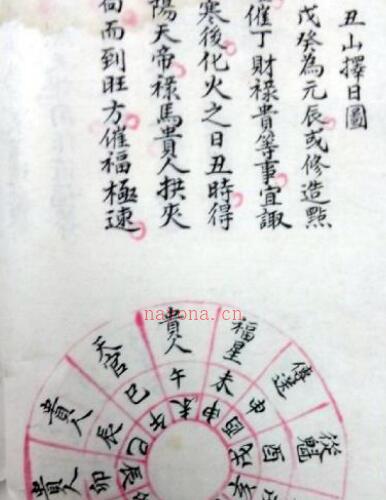 丑山擇日圖
戊癸為元辰或修造點
催丁財祿貴等事宜諏
寒後化火之日丑時得
陽天帝祿馬貴人拱夾
向而到旺方催福極速
nayona.cn
貴人
福星
傳送
從魁
天官
貴人
貴人
午
未
申
酉
巳
辰
卯